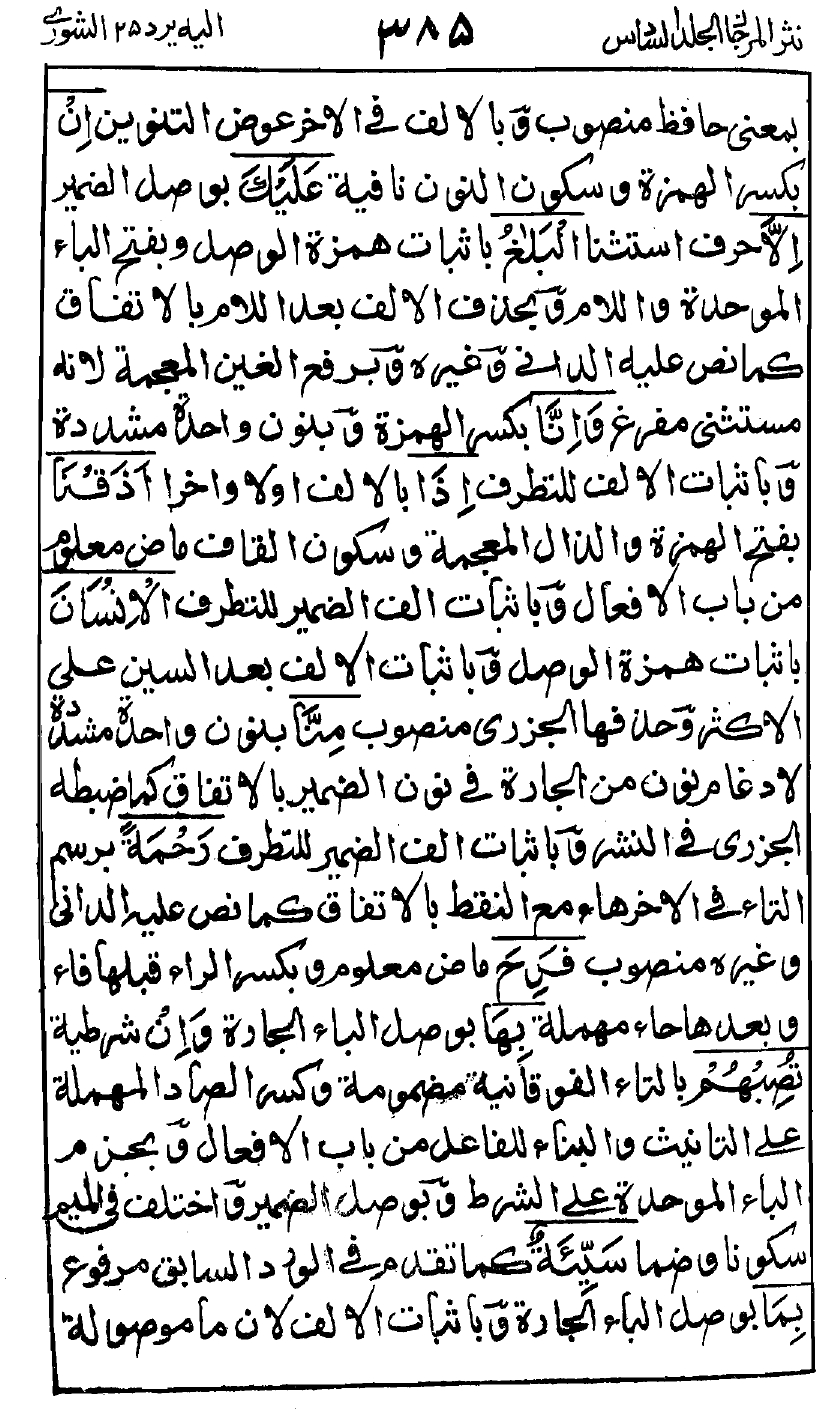 نثر المرجان المجلد السادس ٣٨٥ اليه يرد ٢٥ الشورى
بمعنى حافظ منصوب وَبالالف في الاخر عوض التنوين اِنْ
بكسر الهمزة وسكون النون نافية عَلَيْكَ بوصل الضمير
اِلَّا حرف استثنا الْبَلٰغُ باثبات همزة الوصل وبفتح الباء
الموحدة واللام وَبحذف الالف بعد اللام بالاتفاق
كما نص عليه الداني وَغيره وَبرفع الغين المعجمة لانه
مستثنى مفرغ وَاِنَّا بكسر الهمزة وَبنون واحدة مشددة
وَباثبات الالف للتطرف اِذَا بالالف اولا واخرا اَذَقْنَا
بفتح الهمزة والذال المعجمة وسكون القاف ماض معلوم
من باب الافعال وَباثبات الف الضمير للتطرف الْاِنْسَانَ
باثبات همزة الوصل وَباثبات الالف بعد السين على
الاكثر وَحذفها الجزرى منصوب مِنَّا بنون واحدة مشددة
لادغام نون من الجارة في نون الضمير بالاتفاق كما ضبطه
الجزرى في النشر وَباثبات الف الضمير للتطرف رَحْمَةً برسم
التاء في الاخر هاء مع النقط بالاتفاق كما نص عليه الدانى
وغيره منصوب فَرِحَ ماض معلوم وبكسر الراء قبلها فاء
وبعدها حاء مهملة بِهَا بوصل الباء الجارة وَاِنْ شرطية
تُصِبْهُمْ بالتاء الفوقانية مضمومة وكسر الصاد المهملة
على التانيث والبناء للفاعل من باب الافعال وَبجزم
الباء الموحدة على الشرط وَبوصل الضمير وَاختلف في الميم
سكونا وضما سَيِّئَةٌ كما تقدم في الورد السابق مرفوع
بِمَا بوصل الباء الجارة وَباثبات الالف لان ما موصولة